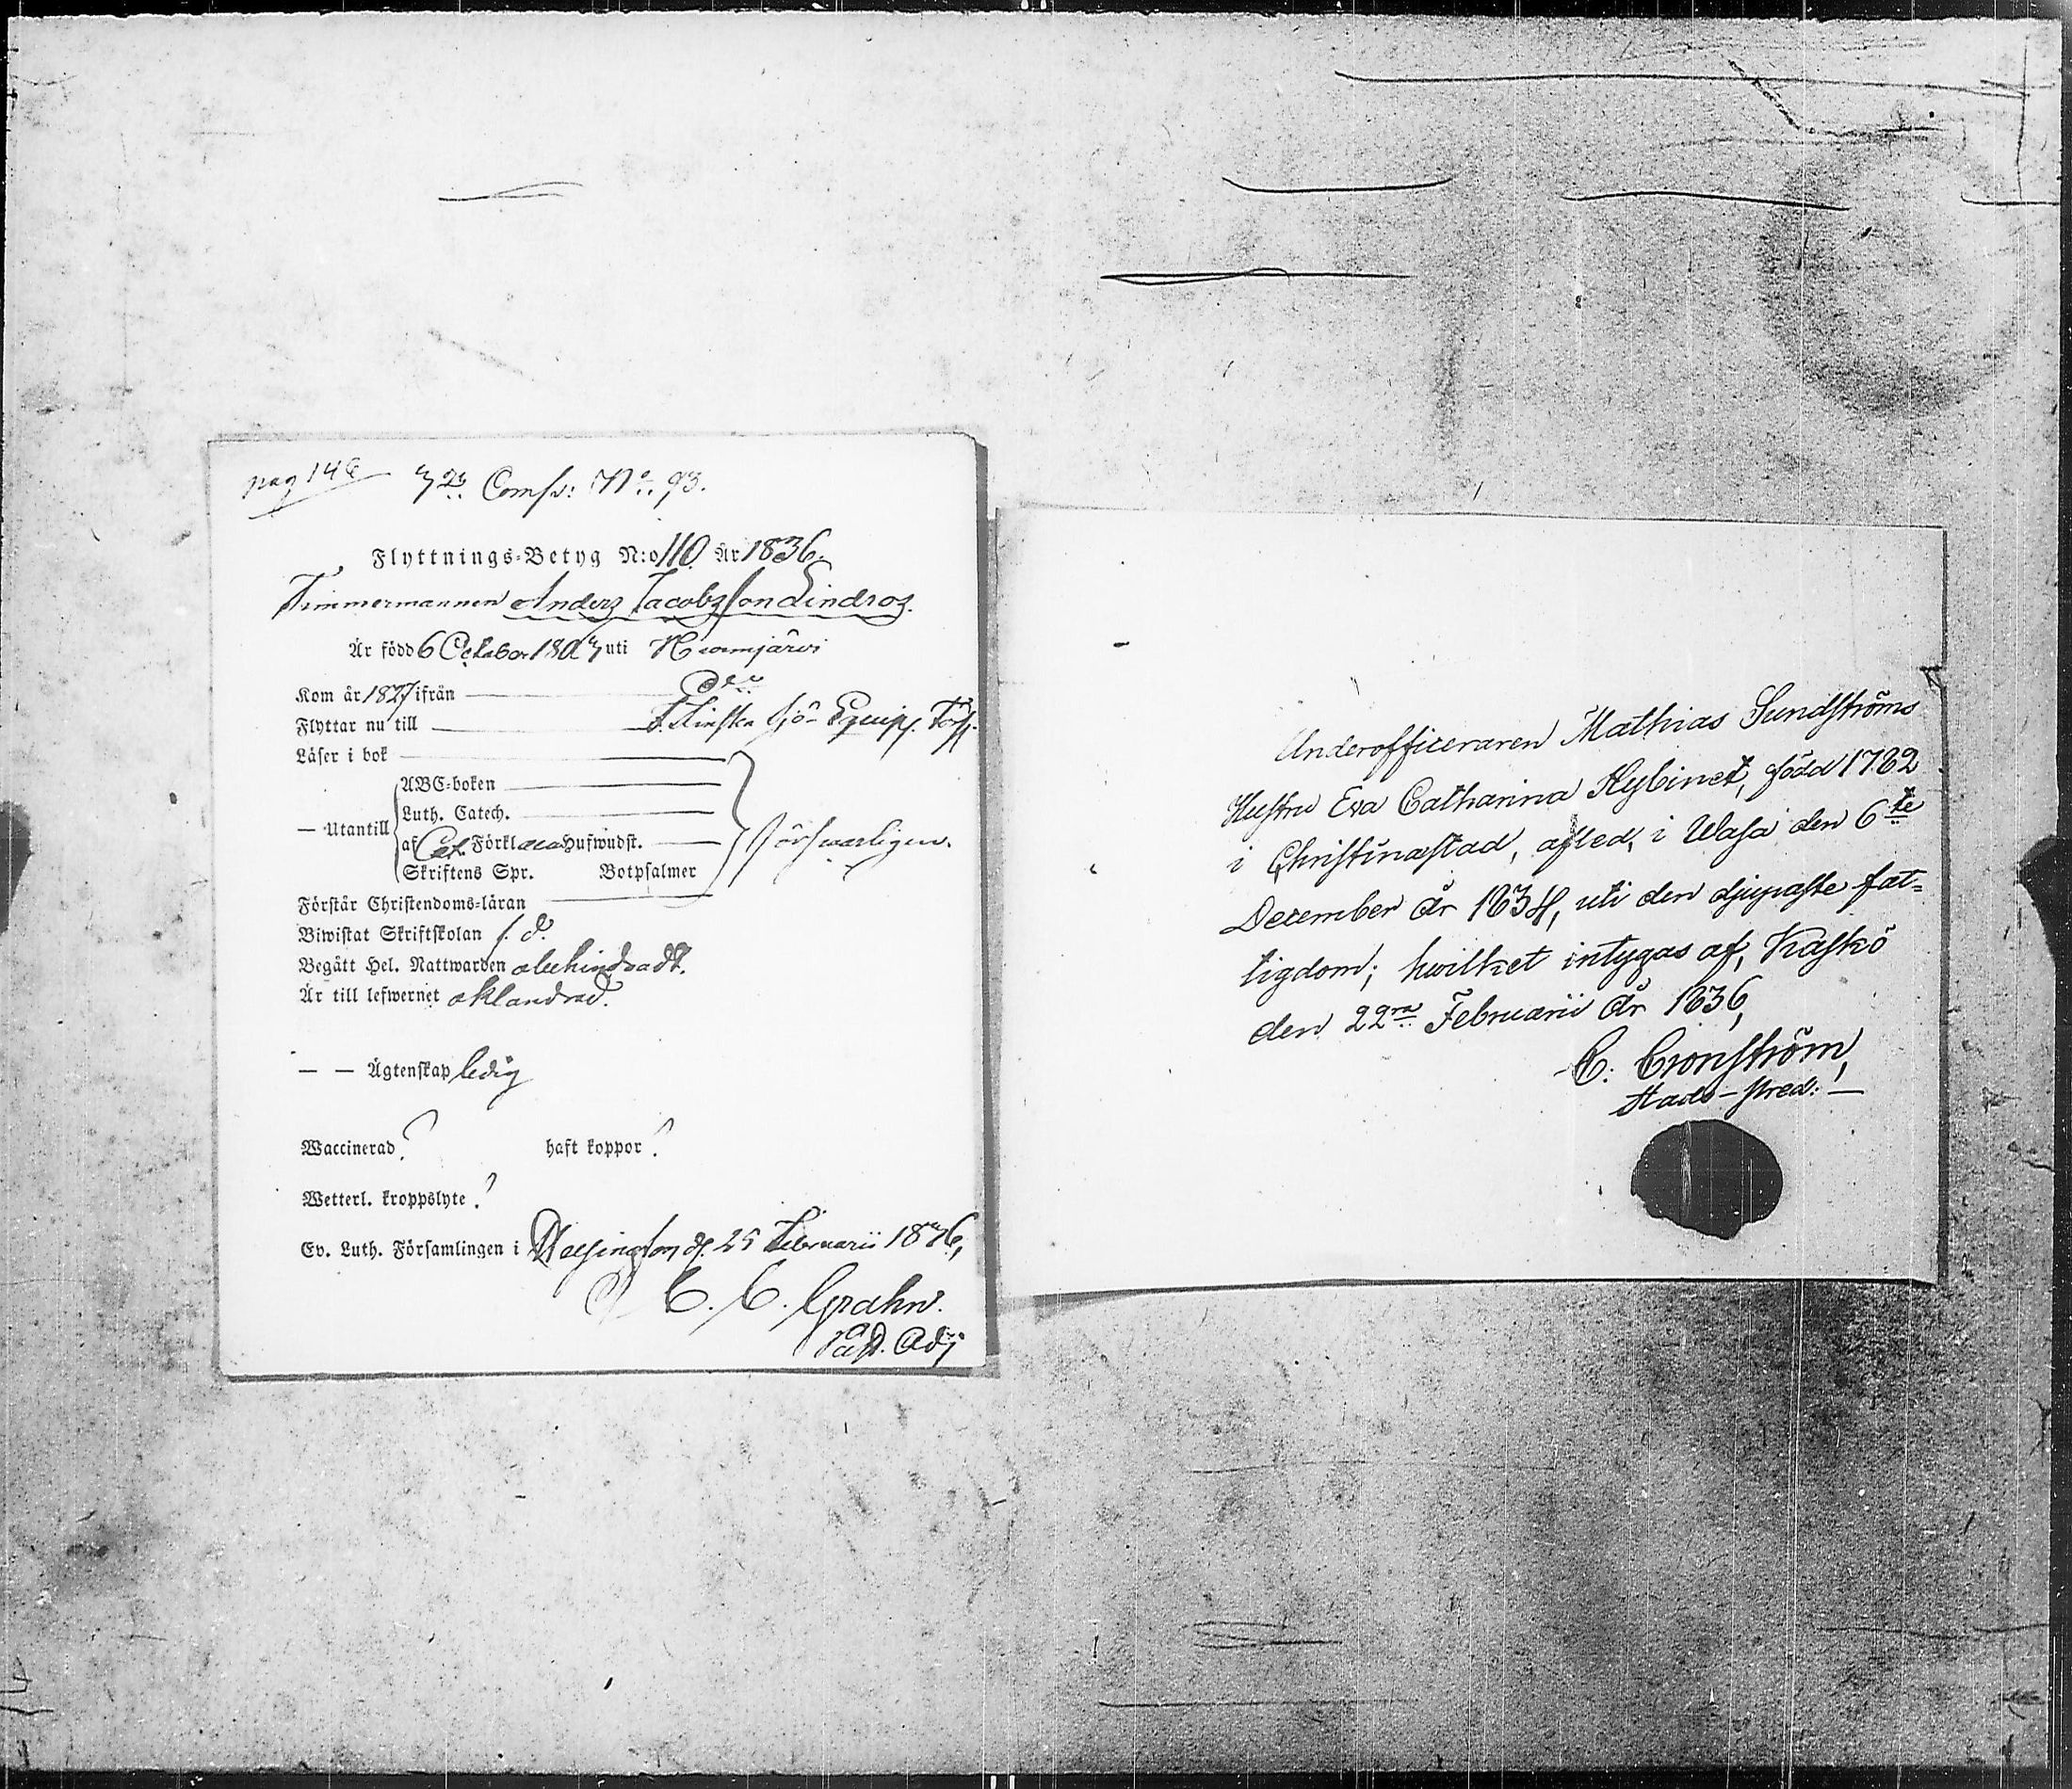 pag 146
3dje Comp: No 93.
Flyttnings-Betyg N:o 110 År 1836.
Timmermannen Anders Jacobsson Lindros.
Är född 6 October 1803 uti
Kom år 1827 ifrån
Flyttar nu till Finska Sjö-Equip.
Läser i bok
— Utantill
ABC-boken
Luth. Catech.
af Cat. Förklar. Hufwudst. försvarligen.
Skriftens Spr. Botpsalmer
Förstår Christendoms-läran
Biwistat Skriftskolan
Begått Hel. Nattwarden obehindradt.
Är till lefwernet oklandrad.
— — Ägtenskap ledig
Waccinerad? haft koppor?
Wetterl. kroppslyte?
Ev. Luth. Församlingen i Helsingfors d. 25 Februarii 1836,
C. C. Grahn.
Past. Adj
Underofficeraren Mathias Sundströms
Hustru Eva Catharina Nybinet, född 1782
i Christinæstad, afled, i Wasa den 6te
December år 1834, uti den djupaste fat=
tigdom; hwilket intygas af, Kaskö
den 22ra Februarii år 1836,
C. Cronström,
Stads-pred: —